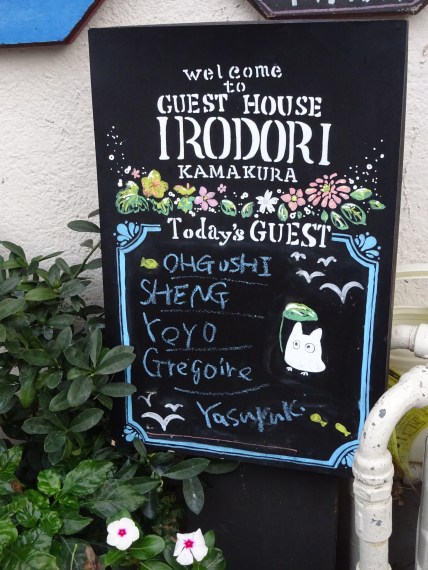 welcome
to
GUEST HOUSE
IRODORI
KAMAKURA
Today's GUEST
OHGUSHI
SHENG
YOYO
Gregoire